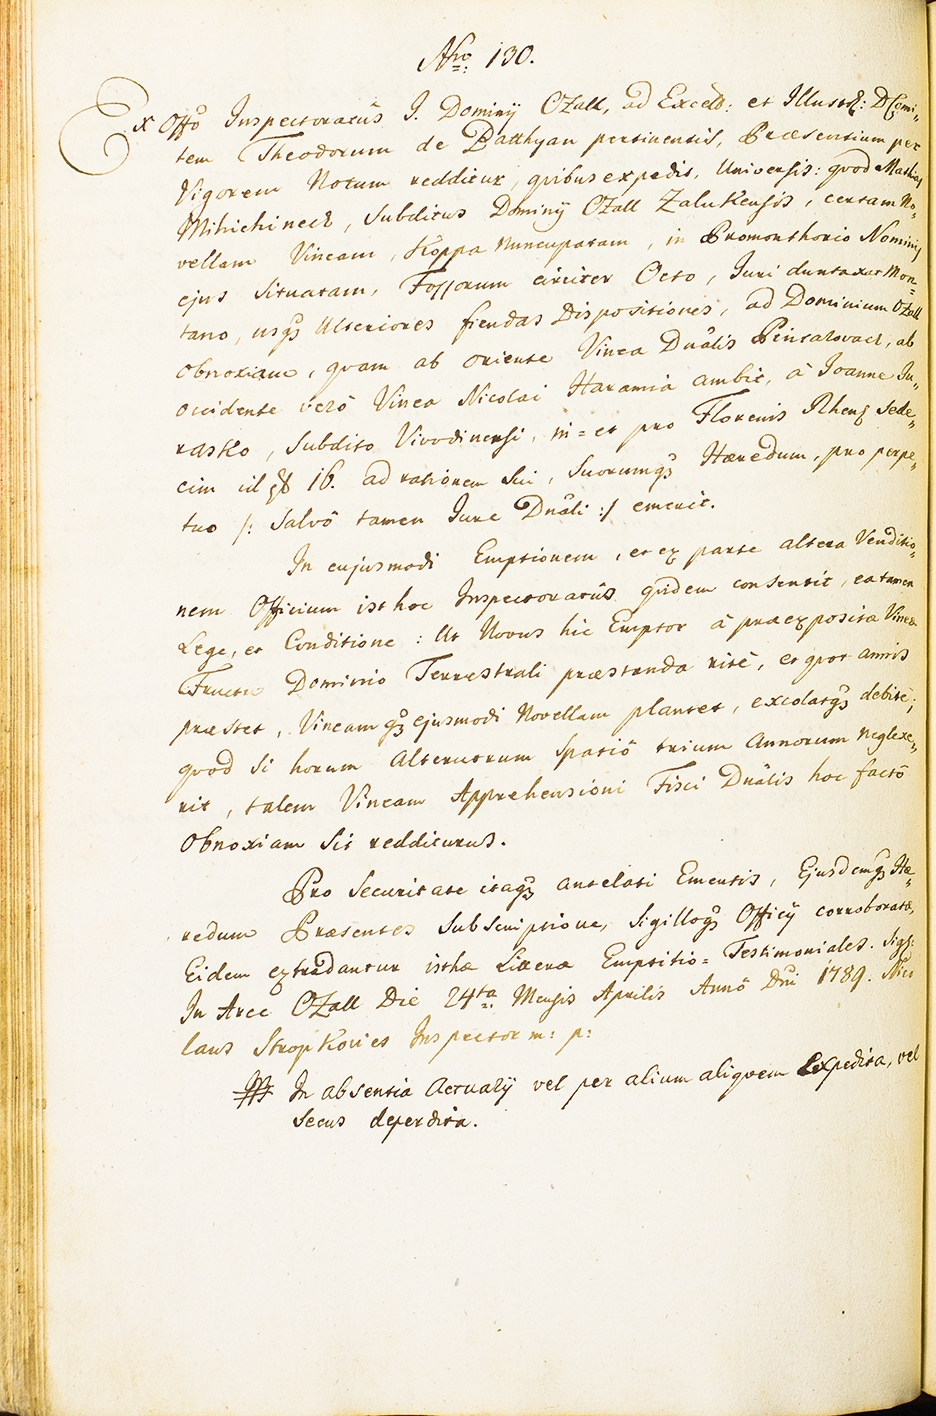 Nro 130.
Ex Offo Inspectoratûs I. Dominÿ Ozall, ad Excells: et Illustr: D Comi„
tem Theodorum de Batthyan pertinentis, Præsentium per
Vigorem Notum redditur, quibus expedit, Universis: quod Mathias
Mihichinecz, Subditus Dominÿ Ozall Zalukensis, certam No„
vellam Vineam, Koppa nuncupatam, in Promonthorio Nominis
ejus Situatam, Fossorum circiter Octo, Juri duntaxat Mon„
tano, usqz Ulteriores fiendas Dispositiones, ad Dominium Ozall
Obnoxiam, quam ab oriente Vinea Dnâlis ab
occidente verò Vinea Nicolai Haramia ambit, à Joanne Ju„
rasko, Subdito Vivodinensi, in = et pro Florenis Rheng Sede„
cim id 16. ad rationem Sui, Suorumqz Hæredum, pro perpe„
tuo /: Salvô tamen Jure Dnâli :/ emerit.
In cujusmodi Emptionem, et ex parte altera Venditio„
nem Officium isthoc Inspectoratûs quidem consentit, ea tamen
Lege, et Conditione: Ut Novus hic Emptor à præexposita Vinea
Fructu Dominio Terrestrali præstanda ritè, et quot annis
præstet, Vineamqz ejusmodi Novellam plantet, excolatqz debitè;
quod Si horum Alterutrum Spatiô trium Annorum neglexe„
rit, talem Vineam Apprehensioni Fisci Dnâlis hoc factô
Obnoxiam Sit redditurus.
Pro Securitate itaqz antelati Ementis, Ejusdemqz Hæ„
redum Præsentes Subscriptione, Sigilloqz Officÿ corroboratæ,
Eidem extradantur isthæ Litteræ Emptitio = Testimoniales. Sigl:
In Arce Ozall Die 24ta Mensis Aprilis Annô Dni 1789. Nico
laus Stropkovics Inspector m: p:
In absentia Actuarÿ vel per alium aliquem Expedita, vel
Secus deperdita.